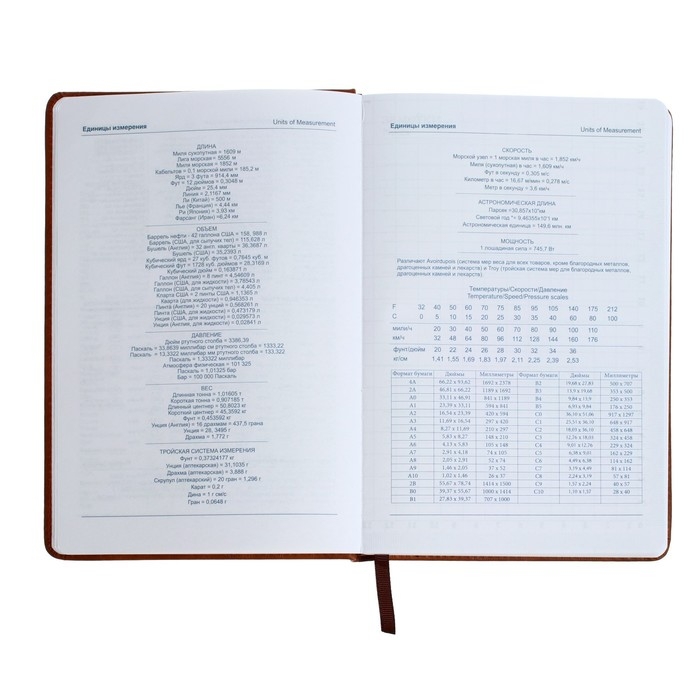 Единицы измерения
Units of Measurement
ДЛИНА
Миля сухопутная = 1609 м
Лига морская = 5556 м
Миля морская = 1852 м
Кабельтов = 0,1 морской мили = 185,2 м
Ярд = 3 фута = 914,4 мм
Фут = 12 дюймов = 0,3048 м
Дюйм = 25,4 мм
Линия = 2,1167 мм
Ли (Китай) = 500 м
Лье (Франция) = 4,44 км
Ри (Япония) = 3,93 км
Фарсанг (Иран) =6,24 км
ОБЪЕМ
Баррель нефти - 42 галлона США = 158, 988 л
Баррель (США, для сыпучих тел) = 115,628 л
Бушель (Англия) = 32 англ. кварты = 36,3687 л
Бушель (США) = 35,2393 л
Кубический ярд = 27 куб. футов = 0,7645 куб. м
Кубический фут = 1728 куб. дюймов = 28,3169 л
Кубический дюйм = 0,163871 л
Галлон (Англия) = 8 пинт = 4,54609 л
Галлон (США, для жидкости) = 3,78543 л
Галлон (США, для сыпучих тел) = 4,405 л
Кварта США = 2 пинты США = 1,1365 л
Кварта (для жидкости) = 0,946353 л
Пинта (Англия) = 20 унций = 0,568261 л
Пинта (США, для жидкости) = 0,473179 л
Унция (США, для жидкости) = 0,029573 л
Унция (Англия, для жидкости) = 0,02841 л
ДАВЛЕНИЕ
Дюйм ртутного столба = 3386,39
Паскаль = 33,8639 миллибар см ртутного столба = 1333,22
Паскаль = 13,3322 миллибар мм ртутного столба = 133,322
Паскаль = 1,33322 миллибар
Атмосфера физическая = 101 325
Паскаль = 1,01325 бар
Бар = 100 000 Паскаль
ВЕС
Длинная тонна = 1,01605 т
Короткая тонна = 0,907185 т
Длинный центнер = 50,8023 кг
Короткий центнер = 45,3592 кг
Фунт = 0,453592 кг
Унция (Англия) = 16 драхмам = 437,5 грана
Унция = 28, 3495 г
Драхма = 1,772 г
ТРОЙСКАЯ СИСТЕМА ИЗМЕРЕНИЯ
Фунт = 0,37324177 кг
Унция (аптекарская) = 31,1035 г
Драхма (аптекарская) = 3,888 г
Скрупул (аптекарский) = 20 гран = 1,296 г
Карат = 0,2 г
Дина = 1 г см/с
Гран = 0,0648 г
Единицы измерения
Units of Measurement
СКОРОСТЬ
Морской узел = 1 морская миля в час = 1,852 км/ч
Миля (сухопутная) в час = 1,609 км/ч
Фут в секунду = 0,305 м/с
Километр в час = 16,67 м/мин = 0,278 м/с
Метр в секунду = 3,6 км/ч
АСТРОНОМИЧЕСКАЯ ДЛИНА
Парсек =30,857x10¹²км
Световой год *= 9,46355x10¹² км
Астрономическая единица = 149,6 млн. км
МОЩНОСТЬ
1 лошадиная сила = 745,7 Вт
Различают Avoirdupois (система мер веса для всех товаров, кроме благородных металлов,
драгоценных камней и лекарств) и Troy (тройская система мер для благородных металлов,
драгоценных камней и лекарств).
Температуры/Скорости/Давление
Temperature/Speed/Pressure scales
F 32 40 50 60 70 75 85 95 105 140 175 212
C 0 5 10 15 20 25 30 35 40 60 80 100
мили/ч 20 30 40 50 60 70 80 90 100 110
км/ч 32 48 64 80 96 112 128 144 160 176
фунт/дюйм 20 22 24 26 28 30 32 34 36
кг/см 1,41 1,55 1,69 1,83 1,97 2,11 2,25 2,39 2,53
Формат бумаги Дюймы Миллиметры Формат бумаги Дюймы Миллиметры
4A 66,22 x 93,62 1682 x 2378 B2 19,68 x 27,83 500 x 707
2A 46,81 x 66,22 1189 x 1682 B3 13,9 x 19,68 353 x 500
A0 33,11 x 46,81 841 x 1189 B4 9,84 x 13,9 250 x 353
A1 23,39 x 33,11 594 x 841 B5 6,93 x 9,84 176 x 250
A2 16,54 x 23,39 420 x 594 C0 36,10 x 51,06 917 x 1297
A3 11,69 x 16,54 297 x 420 C1 25,51 x 36,10 648 x 917
A4 8,27 x 11,69 210 x 297 C2 18,03 x 36,10 458 x 648
A5 5,83 x 8,27 148 x 210 C3 12,76 x 18,03 324 x 458
A6 4,13 x 5,83 105 x 148 C4 9,01 x 12,76 229 x 324
A7 2,91 x 4,13 74 x 105 C5 6,38 x 9,01 162 x 229
A8 2,05 x 2,91 52 x 74 C6 4,49 x 6,38 114 x 162
A9 1,46 x 2,05 37 x 52 C7 3,19 x 4,49 81 x 114
A10 1,02 x 1,46 26 x 37 C8 2,24 x 3,19 57 x 81
2B 55,67 x 78,74 1414 x 1500 C9 1,57 x 2,24 40 x 57
B0 39,37 x 55,67 1000 x 1414 C10 1,10 x 1,57 28 x 40
B1 27,83 x 39,37 707 x 1000